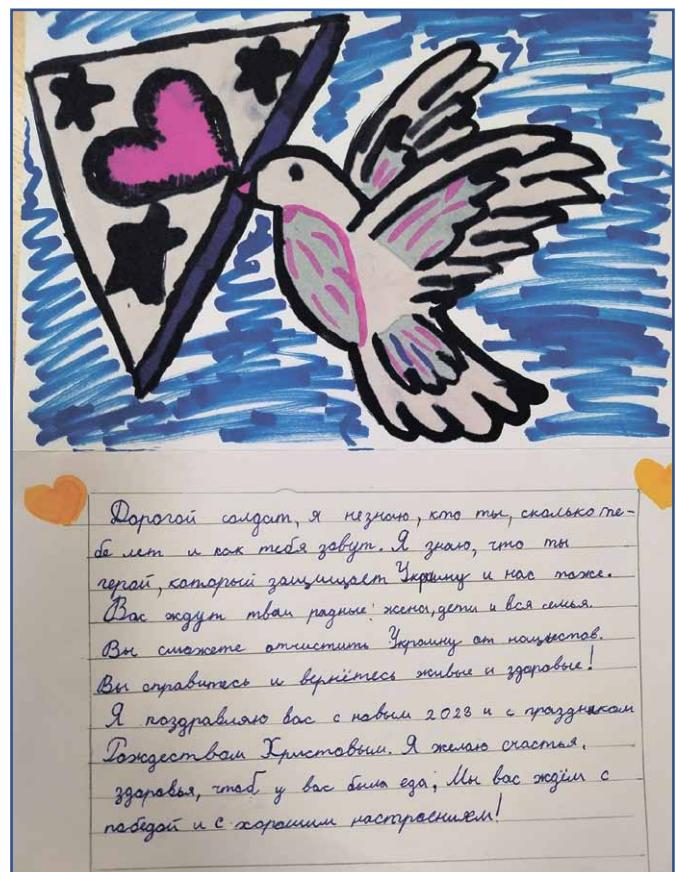 Дорогой солдат, я незнаю, кто ты, сколько те-
бе лет и как тебя зовут. Я знаю, что ты
герой, который защищает Украину и нас тоже.
Вас ждут твои родные: жена, дети и вся семья.
Вы сможете отчистить Украину от нацыстов.
Вы справитесь и вернётесь живые и здоровые!
Я поздравляю вас с новым 2023 и с праздником
Рождеством Христовым. Я желаю счастья,
здоровья, чтоб у вас была еда; Мы вас ждём с
победой и с хорошим настроением!